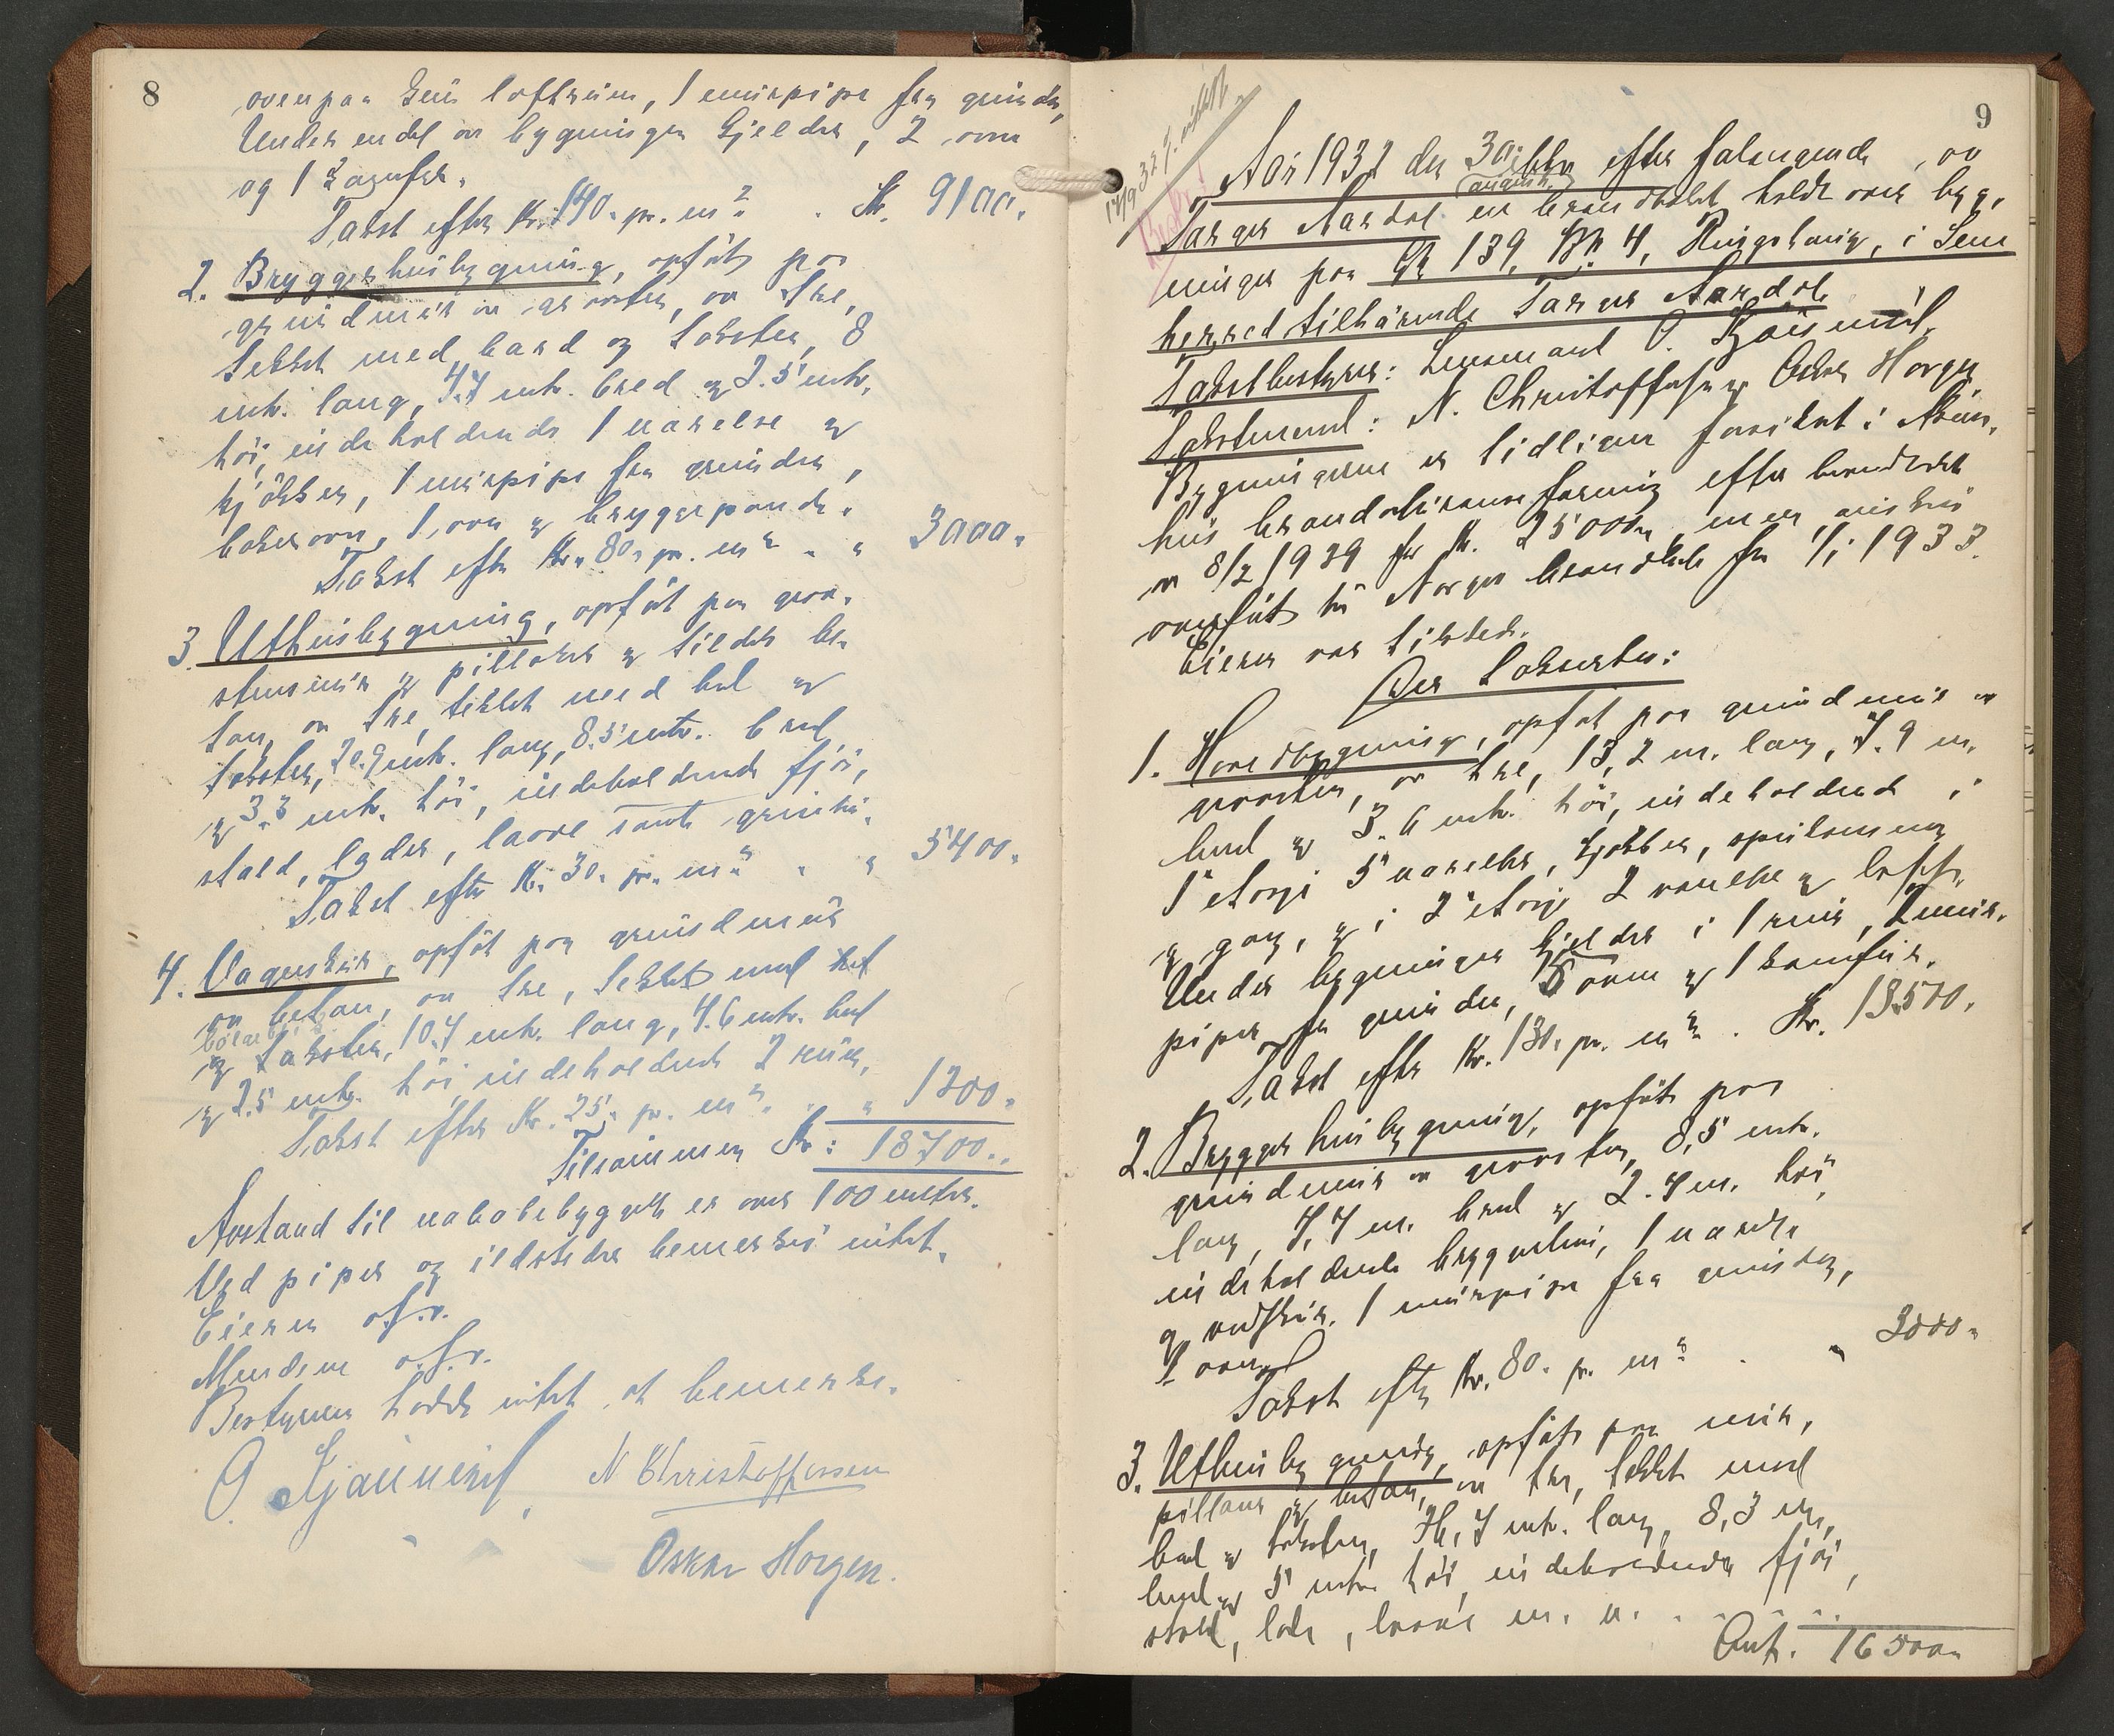 8
ovenpaa kun loftrum, 1 murpipe fra grunden,
Under en del av bygningen kjelder, 2 ovne
og 1 komfur.
Takst efter Kr. 140.- pr. m² . Kr. 9100.-
2. Bryggerhusbygning, opført paa
grundmur av graasten, av træ,
tekket med bord og taksten, 8
mtr. lang, 4.7 mtr. bred og 2.5 mtr.
høi, indeholdende 1 værelse og
kjøkken, 1 murpipe fra grunden,
bakerovn, 1 ovn og bryggepande.
Takst efter Kr. 80.- pr. m² - " 3000.-
3. Uthusbygning, opført paa graa-
stensmur og pillarer og tildels be-
ton, av træ, tekket med bord og
taksten, 20.9 mtr. lang, 8.5 mtr. bred
og 3.3 mtr. høi, indeholdende fjøs,
stald, lader, laave samt grisehus.
Takst efter Kr. 30.- pr. m² - " 5400.-
4. Vognskur, opført paa grundmur
av beton, av træ, tekket med
bølgeblik
og taksten, 10.7 mtr. lang, 4.6 mtr. bred
og 2.5 mtr. høi, indeholdende 2 rum,
Takst efter Kr. 25.- pr. m² . " 1200.-
Tilsammen Kr: 18700.-
Avstand til nabobebyggelse er over 100 meter.
Ved piper og ildsteder bemerkes intet.
Eieren o.f.v.
Mendene o.f.v.
Bestyreren hadde intet at bemerke.
O. Kjausmoel. N Christoffersen
Oskar Horgen.
9
17/9 32
Aar 1932 den 30. efter forlangende av
august
Torger Aardal en branntakst holdt over byg-
ninger paa Gr 139, Br. 4, Ringshaug, i Sem
herred tilhørende Torger Aardal.
Takstbestyrer: Lensmand O.
Takstmend: N. Christoffersen og Oskar Horgen
Bygningerne er tidligere forsikret i
hus brandassuranseforening efter branntakst
av 8/2 1929 for Kr. 25000.-, men ønskes
overført til Norges branntrede fra 1/1 1933.
Eieren var tilstede.
Der takseres:
1. Hovedbygning, opført paa grundmur av
graasten, av træ, 13,2 m. lang, 7.9 m.
bred og 3.6 mtr. høi, indeholdende i
1 etasje 5 værelser, kjøkken, spiskammer
og gang, og i 2 etasje 2 værelser og loft.
Under bygningen kjelder i 1 rum, 2 mur-
piper fra grunden, 5 ovne og 1 komfur.
Takst efter Kr. 130.- pr. m² . Kr. 13500.
2. Bryggerhusbygning, opført paa
grundmur av graasten, 8,5 mtr.
lang, 4,7 m. bred og 2.4 m. høi,
indeholdende bryggerhus, 1 værelse
og vedskur. 1 murpipe fra grunden,
1 ovn
Takst efter Kr. 80.- pr. m² . " 3000.-
3. Uthusbygning, opført paa mur,
pillarer og beton, av træ, tekket med
bord og taksten, mtr. lang, 8,3 m.
bred og 5 mtr. høi, indeholdende fjøs,
stald, lade, laave m. m.
Ant. 16500.-